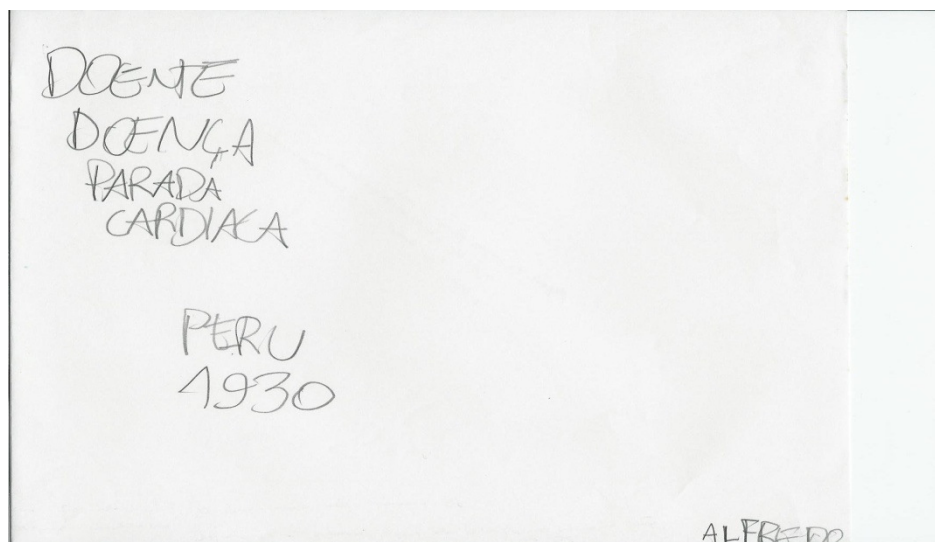 DOENTE
DOENÇA
PARADA
CARDIACA
PERU
1930
ALFREDO